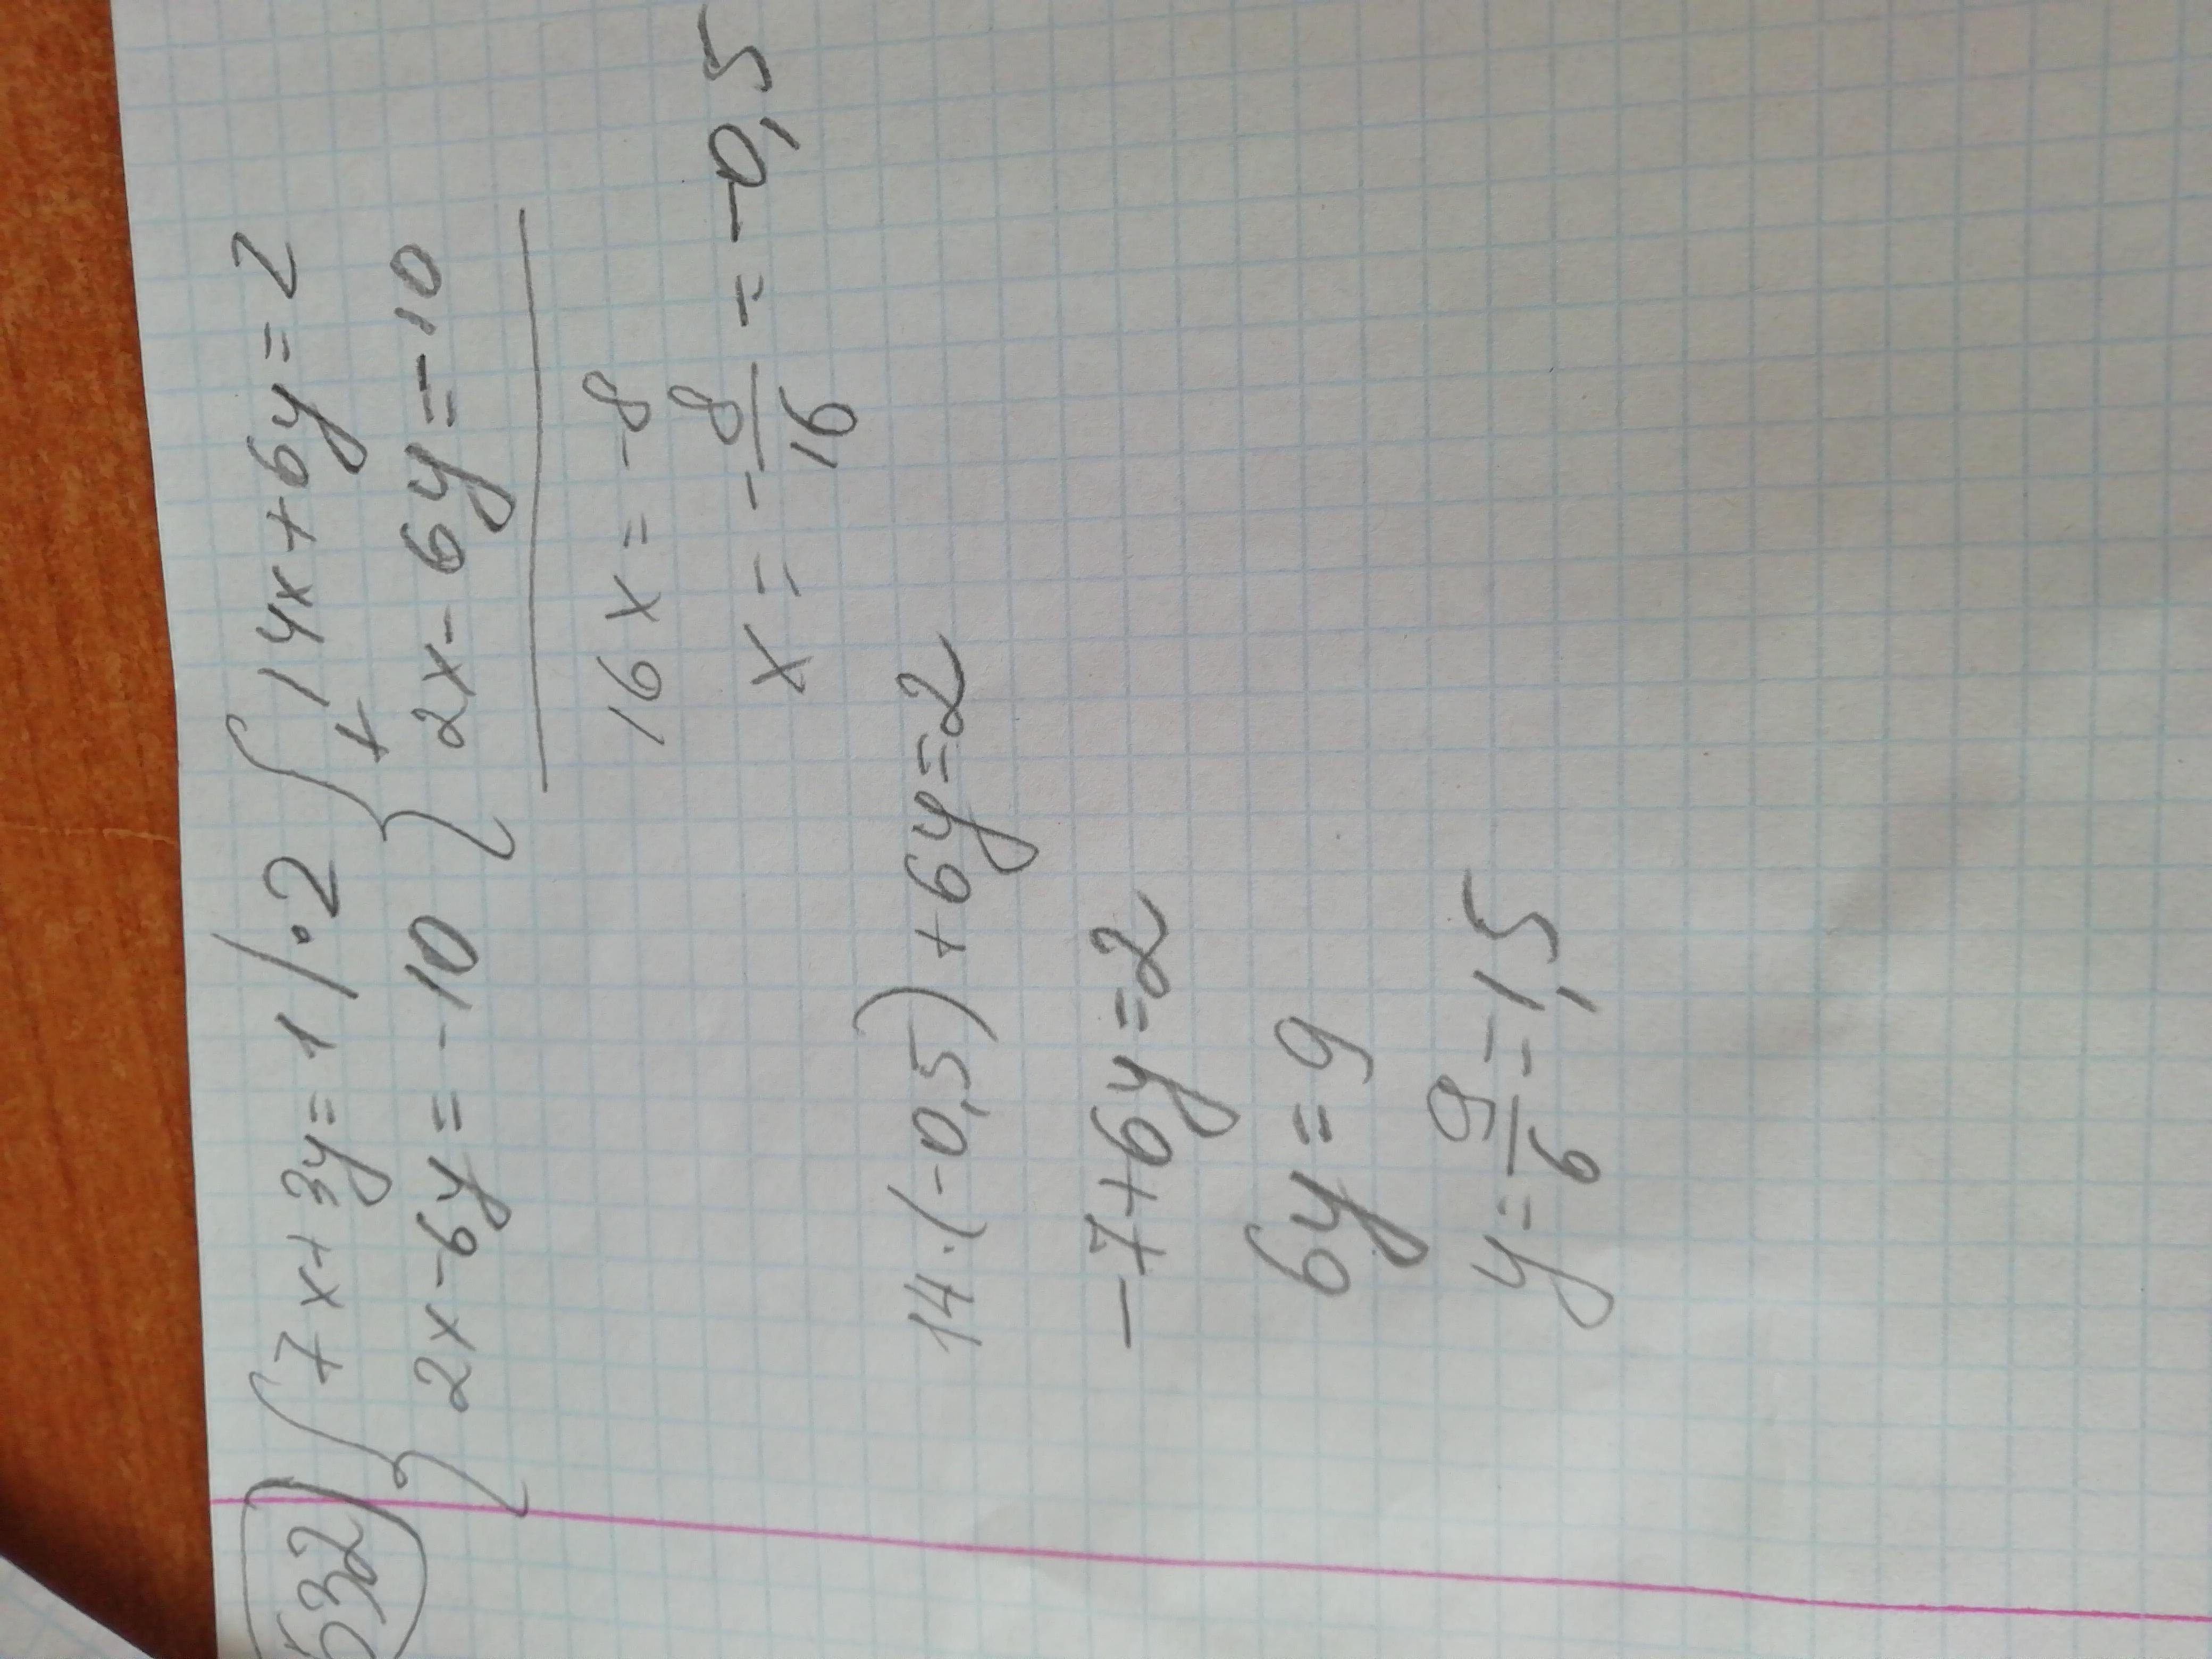 532) { 7x+3y=1 /·2 { 14x+6y=2
2x-6y=-10 + 2x-6y=-10
16x=-8
x=-8/16=-0,5
14·(-0,5)+6y=2
-7+6y=2
6y=9
y=9/6=1,5